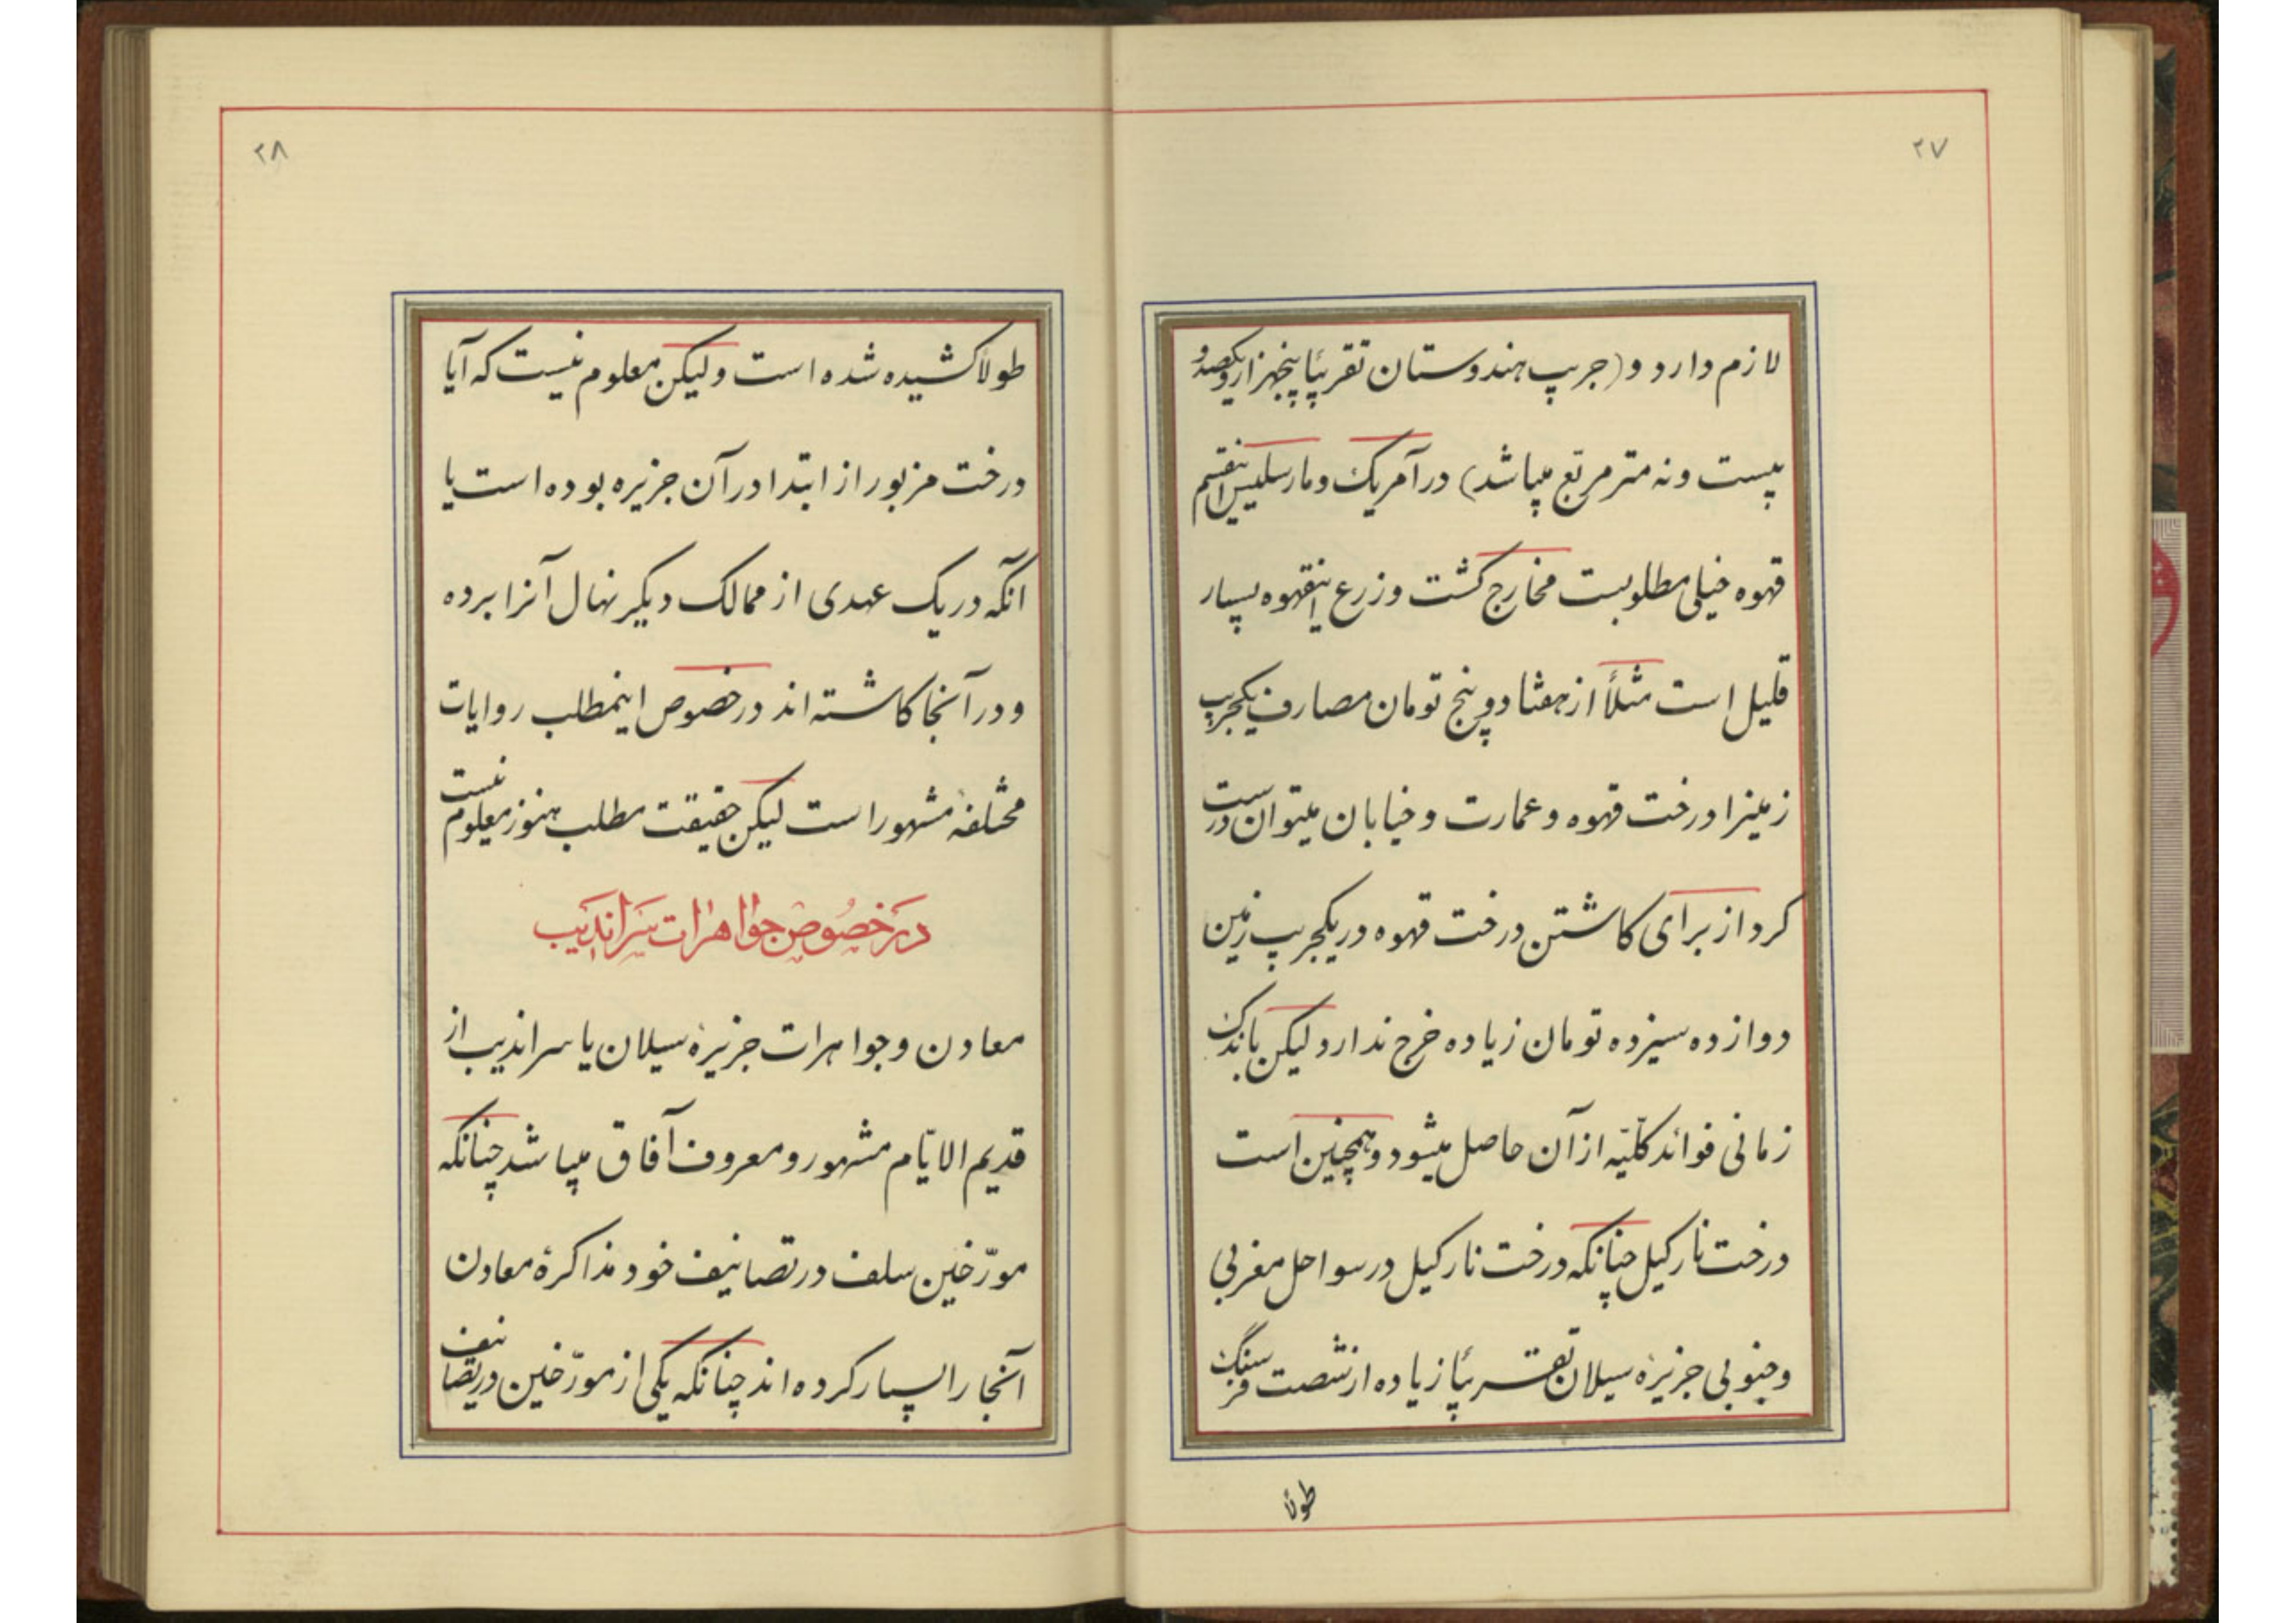 ۲۷
لازم دارد و (جریب هندوستان تقریبًا پنجهزار و یکصد و
بیست و نه متر مربّع میباشد) در آمریک و مارسلیس اینقسم
قهوه خیلی مطلوبست مخارج کشت و زرع اینقهوه بسیار
قلیل است مثلاً از هفتاد و پنج تومان مصارف یکجریب
زمینرا درخت قهوه و عمارت و خیابان میتوان درست
کرد از برای کاشتن درخت قهوه در یکجریب زمین
دوازده سیزده تومان زیاده خرج ندارد لیکن باندک
زمانی فوائد کلّیّه از آن حاصل میشود و همچنین است
درخت نارکیل چنانکه درخت نارکیل در سواحل مغربی
و جنوبی جزیرهٔ سیلان تقریبًا زیاده از شصت فرسنگ
طولا
۲۸
طولا کشیده شده است ولیکن معلوم نیست که آیا
درخت مزبور از ابتدا در آن جزیره بوده است یا
آنکه در یک عهدی از ممالک دیگر نهال آنرا برده
و در آنجا کاشته اند در خصوص اینمطلب روایات
مختلفه مشهور است لیکن حقیقت مطلب هنوز معلوم نیست
در خصوص جواهرات سراندیب
معادن و جواهرات جزیرهٔ سیلان یا سراندیب از
قدیم الایّام مشهور و معروف آفاق میباشد چنانکه
مورّخین سلف در تصانیف خود مذاکرهٔ معادن
آنجا را بسیار کرده اند چنانکه یکی از مورّخین در تصانیف